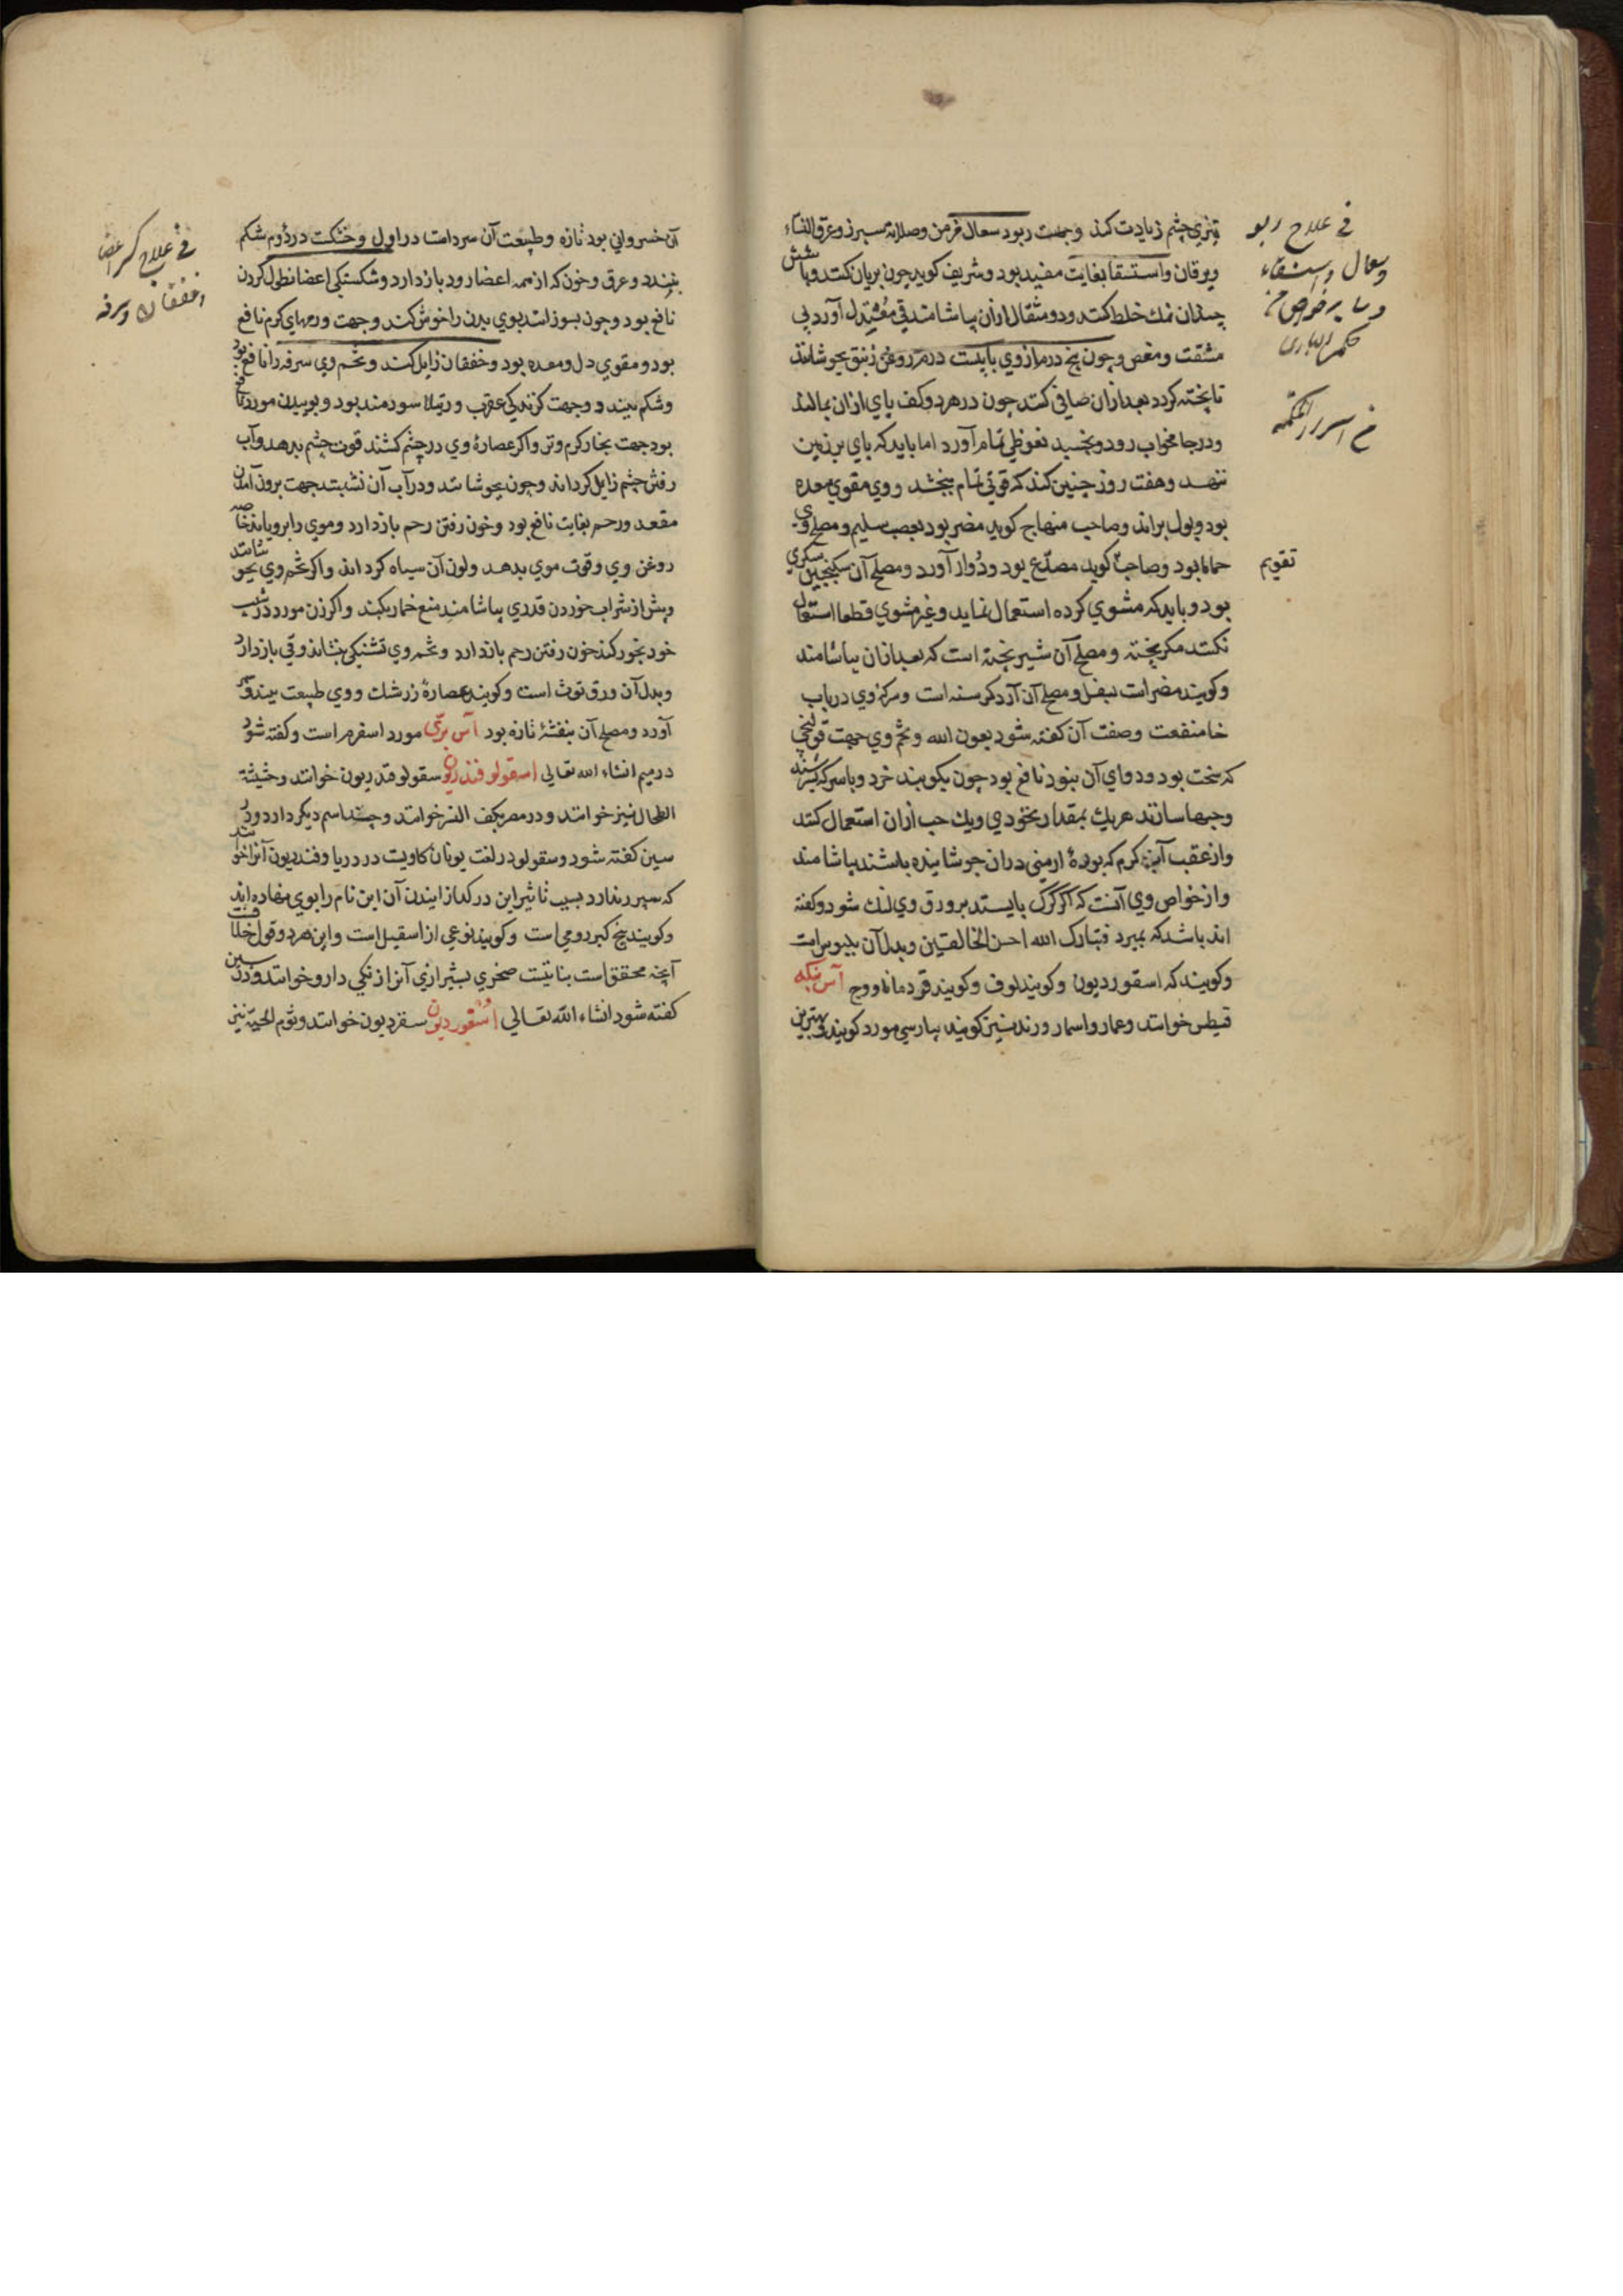 تیزی چشم زیادت کند و جهت ربو و سعال مزمن و صلابة سپرز و عرق النساء
و یرقان و استسقا بغایت مفید بود و شریف کوید جون بریان کنند و با شش
جندان نمك خلط کنند و دو مثقال ازان بیاشامند قی معتدل آورد بی
مشقت و مغص و جون پنج درم از وی با بیست درم روغن زنبق بجوشانند
تا پخته کردد بعد ازان صافی کنند جون در هر دو کف بای ازان بمالند
و در جامۀ خواب رود و بخسبد نعوظی تمام آورد اما باید که بای بر زمین
ننهد و هفت روز جنین کند که قوتی تمام ببخشد و وی مقوی معده
بود و بول براند و صاحب منهاج کوید مضر بود بعصب سلیم و مصلح وی
حماما بود و صاحب کوید مصدّع بود و دُوار آورد و مصلح آن سکنجبین سکری
تقویم
بود و باید که مشوی کرده استعمال نماید و غیر مشوی قطعا استعمال
نکنند مکر پخته و مصلح آن شیر پخته است که بعد ازان بیاشامند
و کویند مضر است بسفل و مصلح آن آرد کرسنه است و سرکۀ وی در باب
خا منفعت و صفت آن کفته شود بعون الله و تخم وی جهت قولنجی
که سخت بود و دوای آن نبود نافع بود جون بکوبند خرد و با سرکه بسرشند
و حبها سازند هریك بمقدار نخودی و یك حب ازان استعمال کنند
و از عقب آب کرم که بورۀ ارمنی دران جوشانیده باشند بیاشامند
و از خواص وی آنست که اکر کرک بایستد بر ورق وی لنك شود و کفته
اند باشد که بمیرد فتبارک الله احسن الخالقین و بدل آن بلبوس است
و کویند که اسقوردیون و کویند لوف و کویند قردمانا و وج آس
قیطس خوانند و عمار و اسمار و رند نیز کویند بپارسی مورد کویند و بهترین
فی علاج ربو
و سعال و استسقاء
و سایر خواص
من اسرار الحکمة
آن خسروانی بود تازه و طبیعت آن سرد است در اول و خشکست در دوم شکم
ببندد و عرق و خون که از همه اعضا رود باز دارد و شکستکی اعضا نطول کردن
نافع بود و جون بسوزانند بوی بدن را خوش کند و جهت ورمهای کرم نافع
بود و مقوی دل و معده بود و خفقان زایل کند و تخم وی سرفه را نافع بود
و شکم ببندد و جهت کزندکی عقرب و رتیلا سودمند بود و بوییدن مورد نافع
بود جهت بخار کرم و تر و اکر عصارۀ وی در جشم کشند قوت جشم بدهد و آب
رفتن جشم زایل کرداند و جون بجوشانند و در آب آن نشینند جهت برون آمدن
مقعد و رحم بغایت نافع بود و خون رفتن رحم باز دارد و موی را برویاند خاصه
روغن وی و قوت موی بدهد و لون آن سیاه کرداند و اکر تخم وی بجوشانند
و پیش از شراب خوردن قدری بیاشامند منع خمار بکند و اکر زن مورد در شیب
خود بخور کند خون رفتن رحم باز دارد و تخم وی تشنکی بنشاند و قی باز دارد
و بدل آن ورق توث است و کویند عصارۀ زرشك و وی طبیعت ببندد و
آورد و مصلح آن بنفشۀ تازه بود آس برّی مورد اسفرم است و کفته شود
در میم انشاء الله تعالی اسقولوفندریون سقولوقدریون خوانند و حشیشة
الطحال نیز خوانند و در مصر بکف النسر خوانند و جند اسم دیکر دارد و در
سین کفته شود و سقولو در لغت یونان کاویست در دریا و فندریون آنرا خوانند
که سپرز ندارد بسبب تاثیر این در کدازانیدن آن این نام را بوی نهاده اند
و کویند بیخ کبر رومی است و کویند نوعی از اسقیل است و این هر دو قول خلافست
آنجه محقق است نباتیست صخری بشیرازی آنرا زنکی دارو خوانند و در سین
کفته شود انشاء الله تعالی اسقوردیون سقردیون خوانند و ثوم الحیة نیز
فی علاج کسر اعضا
و خفقان و سرفه